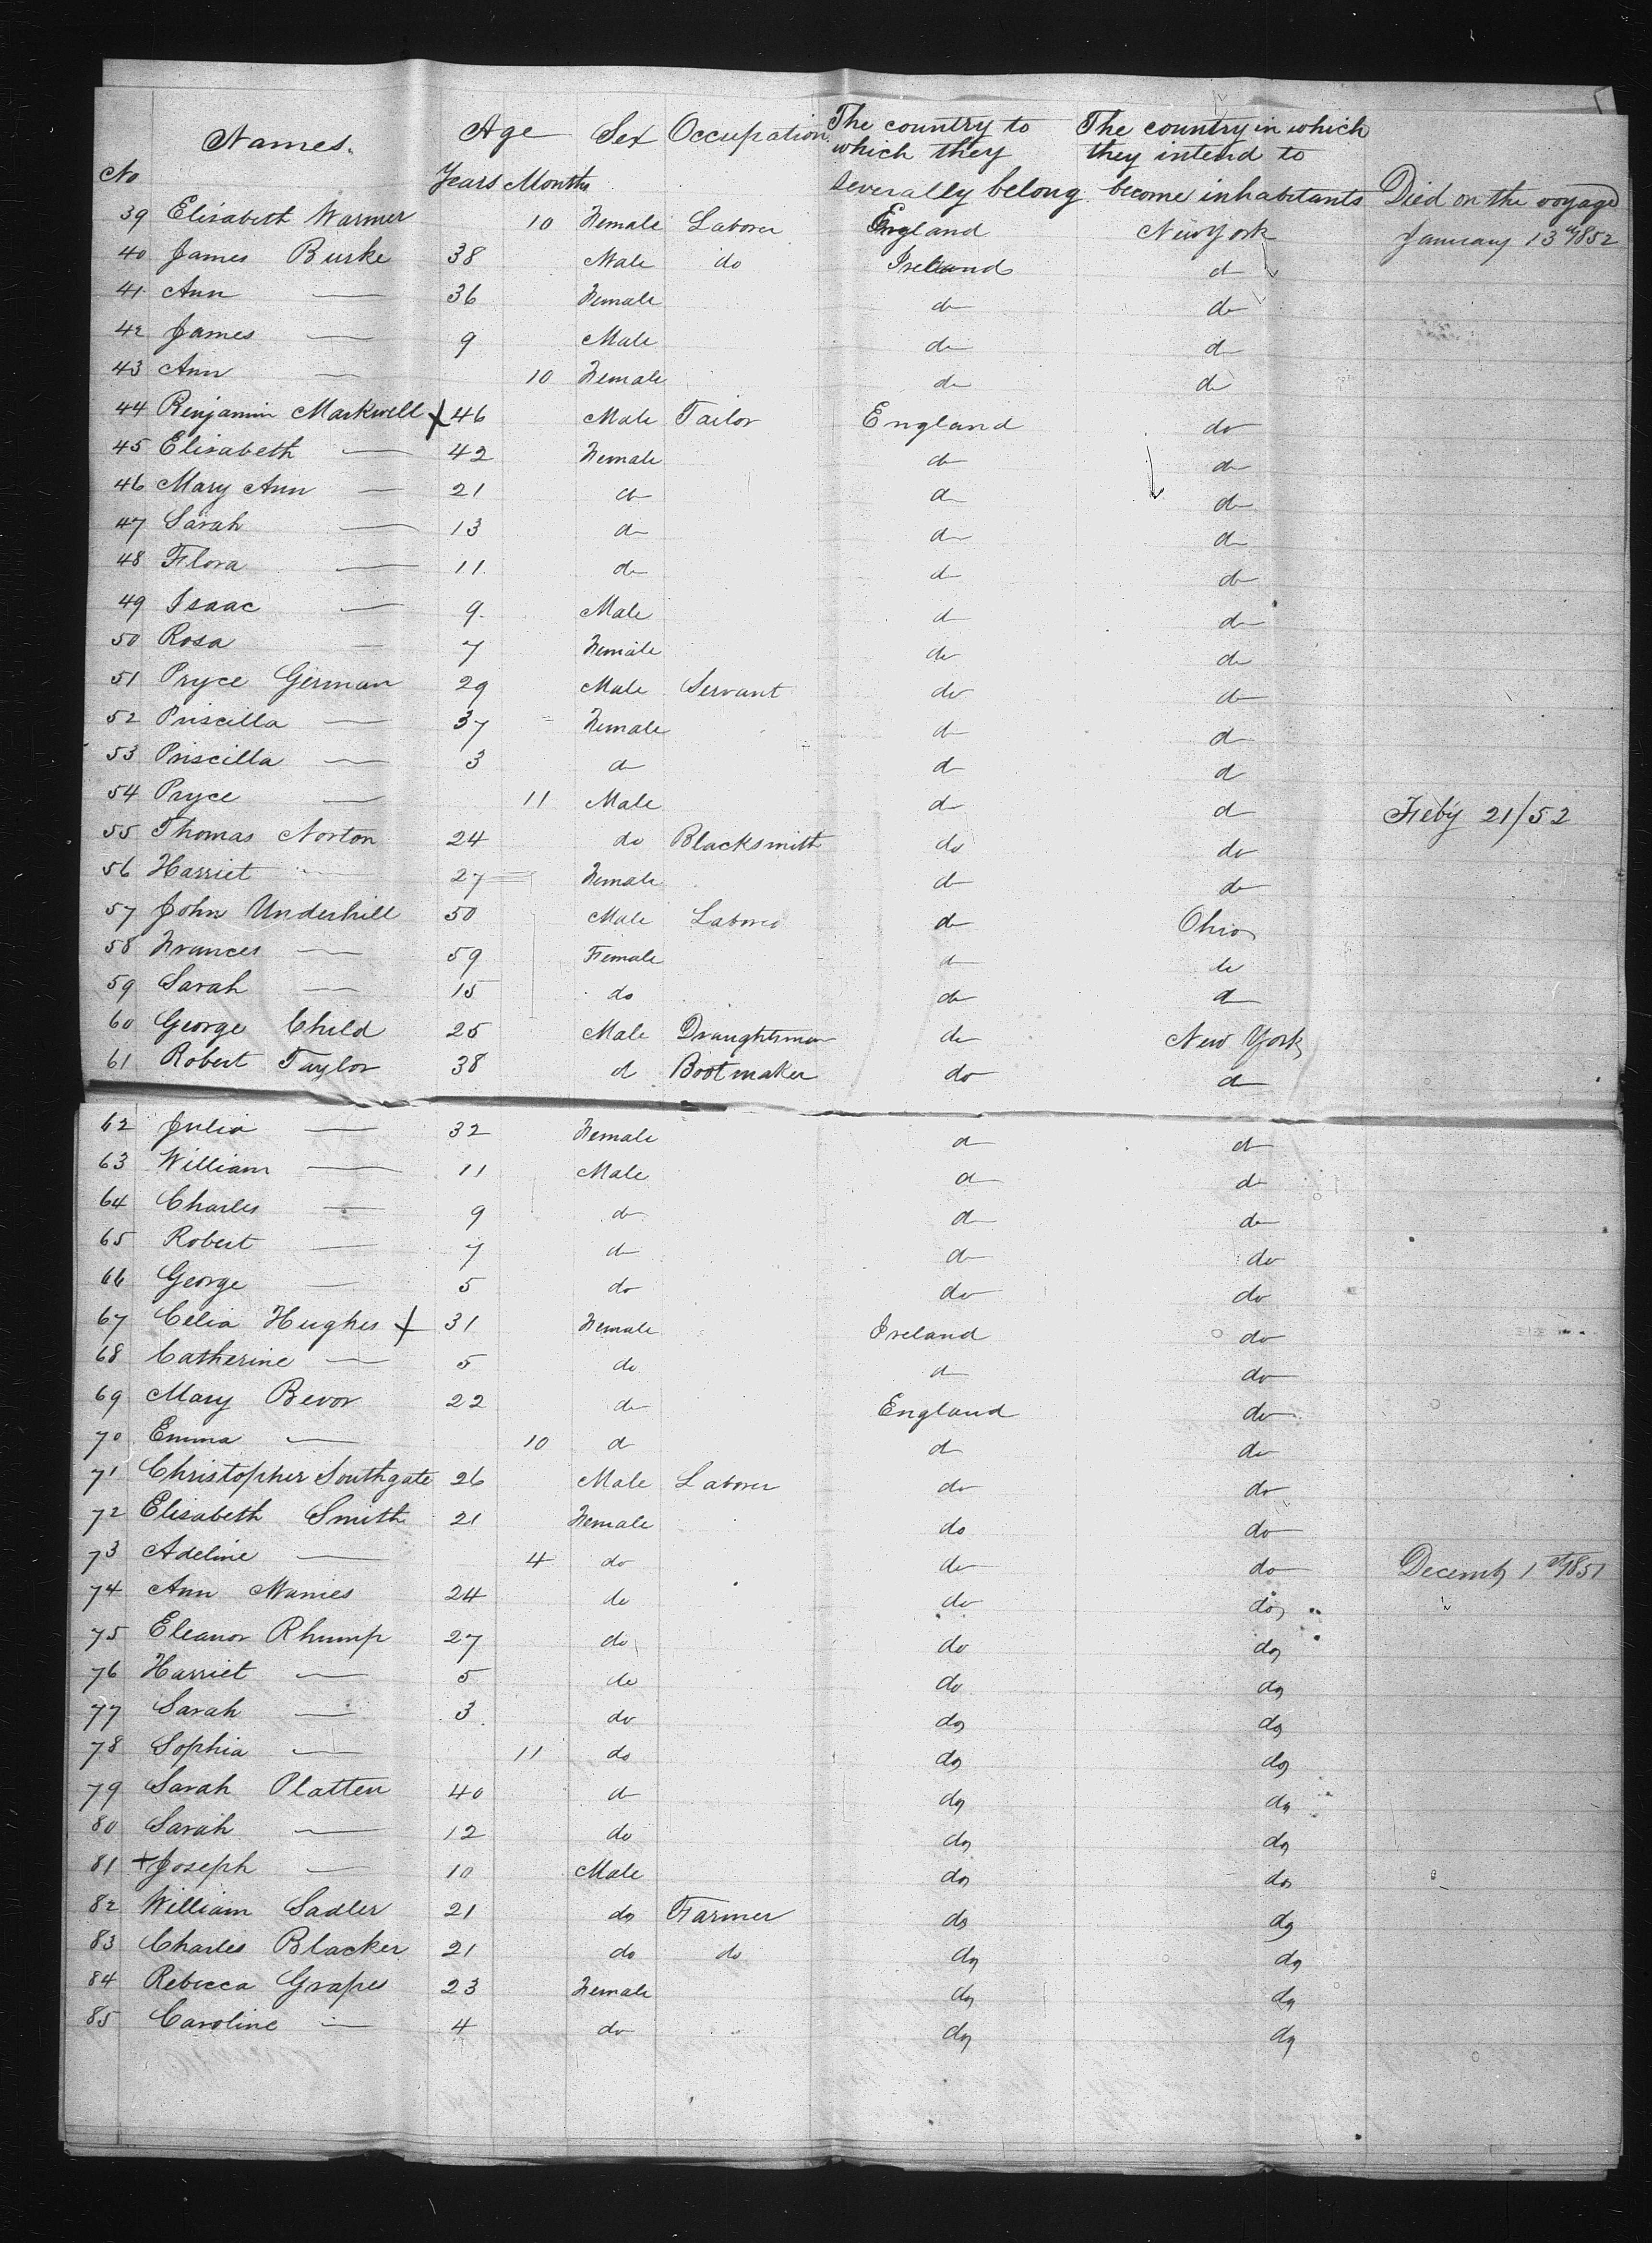 Names. Age Sex Occupation. The country to which they severally belong. The country in which they intend to become inhabitants Died on the voyage
No Years Months
39 Elisabeth Warmer 10 Female Laborer England New York January 13th 1852
40 James Burke 38 Male do Ireland do
41 Ann — 36 Female do do
42 James — 9 Male do do
43 Ann — 10 Female do do
44 Benjamin Markwell X 46 Male Tailor England do
45 Elisabeth — 42 Female do do
46 Mary Ann — 21 do do do
47 Sarah — 13 do do do
48 Flora — 11 do do do
49 Isaac — 9 Male do do
50 Rosa — 7 Female do do
51 Pryce German 29 Male Servant do do
52 Priscilla — 37 Female do do
53 Priscilla — 3 do do do
54 Pryce — 11 Male do do Feby 21/52
55 Thomas Norton 24 do Blacksmith do do
56 Harriet — 27 Female do do
57 John Underhill 50 Male Laborer do Ohio
58 Frances — 59 Female do do
59 Sarah — 15 do do do
60 George Child 25 Male Draughtsman do New York
61 Robert Taylor 38 do Bootmaker do do
62 Julia — 32 Female do do
63 William — 11 Male do do
64 Charles — 9 do do do
65 Robert — 7 do do do
66 George — 5 do do do
67 Celia Hughes X 31 Female Ireland do
68 Catherine — 5 do do do
69 Mary Bevor 22 do England do
70 Emma — 10 do do do
71 Christopher Southgate 26 Male Laborer do do
72 Elisabeth Smith 21 Female do do
73 Adeline — 4 do do do Decemb 1st 1851
74 Ann 24 do do do
75 Eleanor Rhump 27 do do do
76 Harriet — 5 do do do
77 Sarah — 3 do do do
78 Sophia — 11 do do do
79 Sarah Platten 40 do do do
80 Sarah — 12 do do do
81 +Joseph — 10 Male do do
82 William Sadler 21 do Farmer do do
83 Charles Blacker 21 do do do do
84 Rebecca Grapes 23 Female do do
85 Caroline — 4 do do do